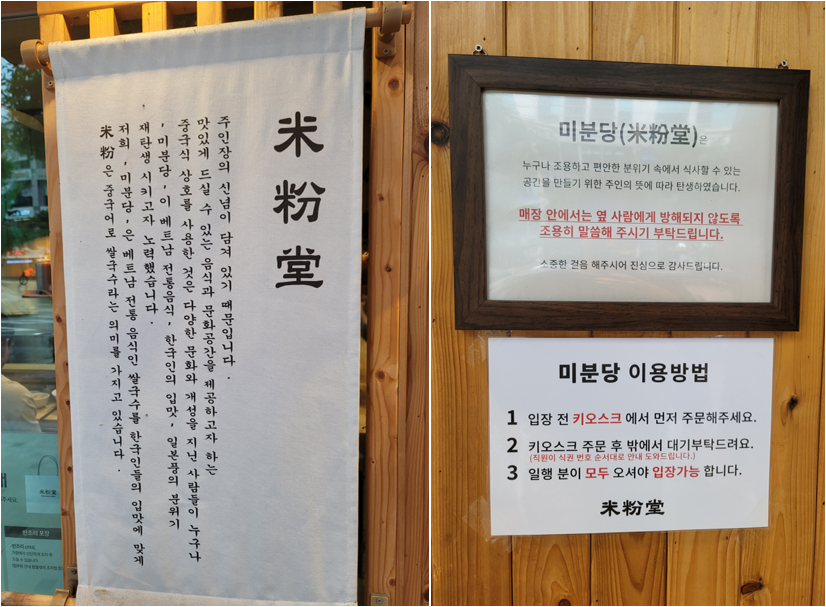 米粉堂
米粉은 중국어로 쌀국수라는 의미를 가지고 있습니다.
저희 '미분당'은 베트남 전통 음식인 쌀국수를 한국인들의 입맛에 맞게
재탄생 시키고자 노력했습니다.
'미분당'이 베트남 전통음식, 한국인의 입맛, 일본풍의 분위기
중국식 상호를 사용한 것은 다양한 문화와 개성을 지닌 사람들이 누구나
맛있게 드실 수 있는 음식과 문화공간을 제공하고자 하는
주인장의 신념이 담겨 있기 때문입니다.
미분당(米粉堂)은
누구나 조용하고 편안한 분위기 속에서 식사할 수 있는
공간을 만들기 위한 주인의 뜻에 따라 탄생하였습니다.
매장 안에서는 옆 사람에게 방해되지 않도록
조용히 말씀해 주시기 부탁드립니다.
소중한 걸음 해주시어 진심으로 감사드립니다.
미분당 이용방법
1 입장 전 키오스크에서 먼저 주문해주세요.
2 키오스크 주문 후 밖에서 대기부탁드려요.
(직원이 식권 번호 순서대로 안내 도와드립니다.)
3 일행 분이 모두 오셔야 입장가능 합니다.
米粉堂